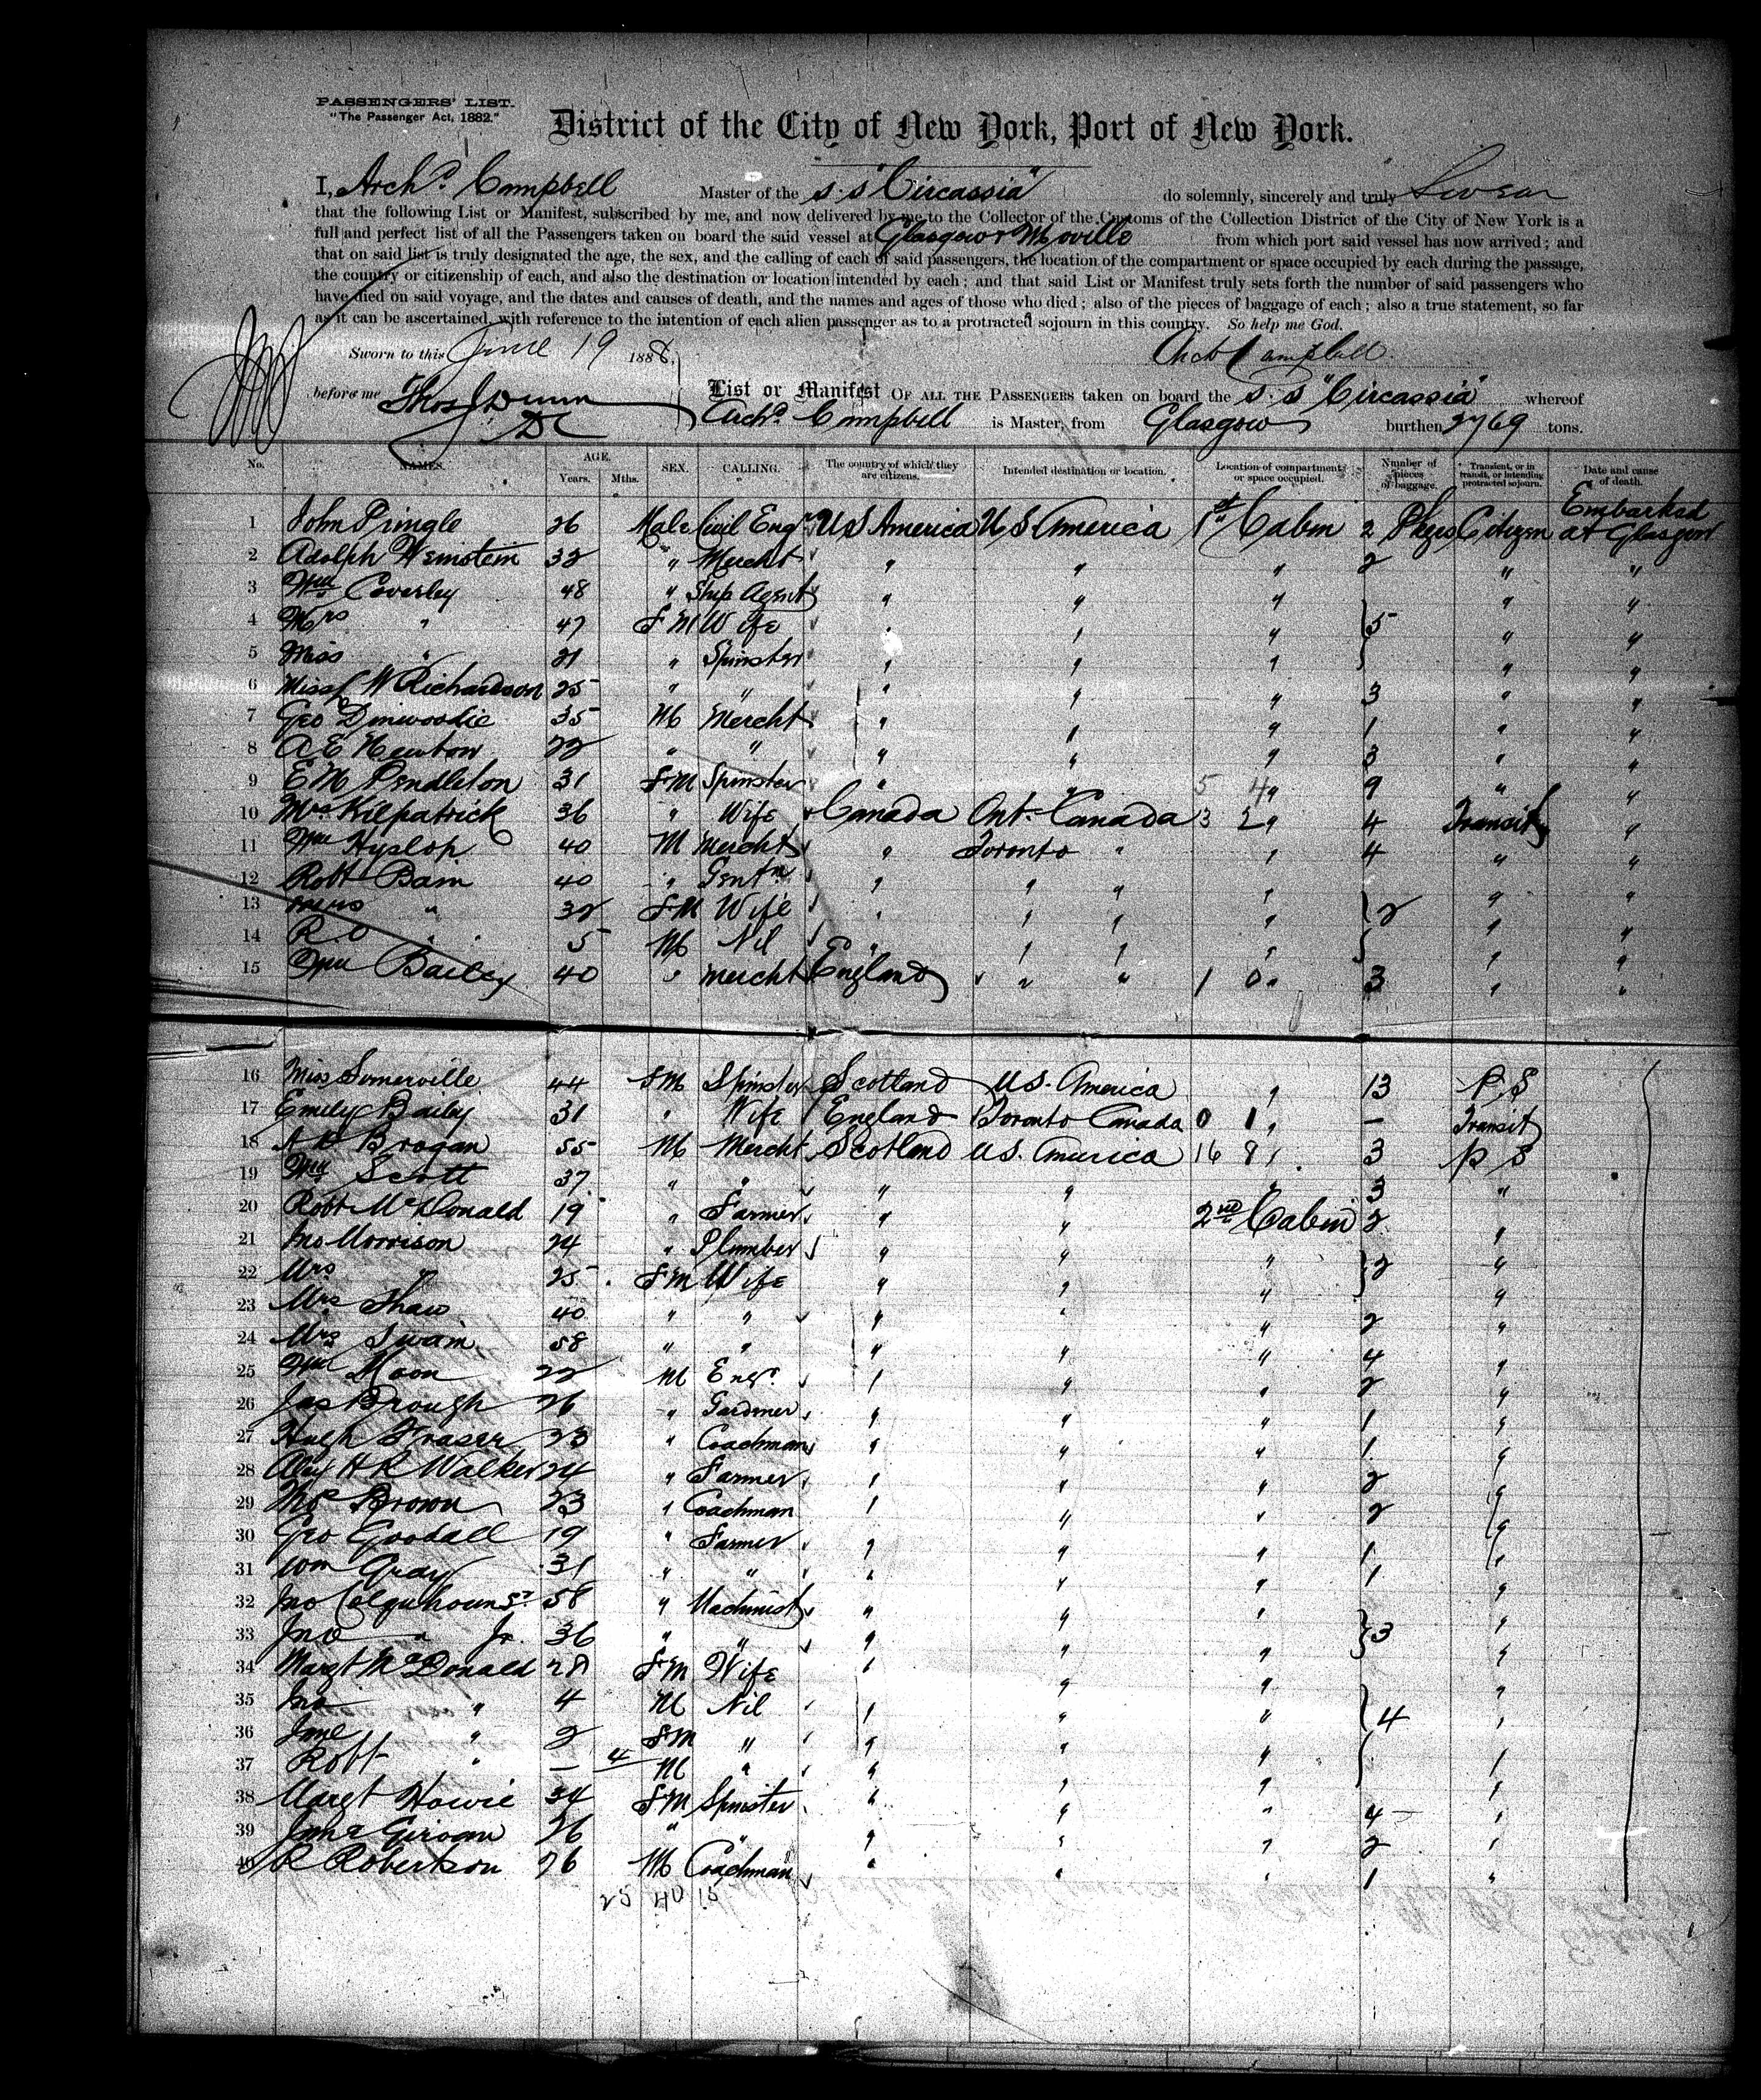 PASSENGERS' LIST.
"The Passenger Act, 1882."
District of the City of New York, Port of New York.
I, Archd. Campbell Master of the S.S "Circassia" do solemnly, sincerely and truly Swear
that the following List or Manifest, subscribed by me, and now delivered by me to the Collector of the Customs of the Collection District of the City of New York is a
full and perfect list of all the Passengers taken on board the said vessel at Glasgow & Moville from which port said vessel has now arrived; and
that on said list is truly designated the age, the sex, and the calling of each of said passengers, the location of the compartment or space occupied by each during the passage,
the country or citizenship of each, and also the destination or location intended by each; and that said List or Manifest truly sets forth the number of said passengers who
have died on said voyage, and the dates and causes of death, and the names and ages of those who died; also of the pieces of baggage of each; also a true statement, so far
as it can be ascertained, with reference to the intention of each alien passenger as to a protracted sojourn in this country. So help me God.
Sworn to this June 19 1888. Archd Campbell.
before me Thos J Dunn List or Manifest OF ALL THE PASSENGERS taken on board the S.S "Circassia" whereof
DC Archd. Campbell is Master, from Glasgow burthen 2769 tons.
No. NAMES. AGE. Years. Mths. SEX. CALLING. The country of which they are citizens. Intended destination or location. Location of compartment or space occupied. Number of pieces of baggage. Transient, or in transit, or intending protracted sojourn. Date and cause of death.
1 John Pringle 26 Male Civil Engr U S America U S America 1st Cabin 2 Pkges Citizen Embarked at Glasgow
2 Adolph Weinstein 32 " Mercht " " " 2 " "
3 Wm Coverley 48 " Ship Agent " " " " "
4 Mrs " 47 F M Wife " " " 5 " "
5 Miss " 21 " Spinster " " " " "
6 Miss W Richardson 25 " " " " " 3 " "
7 Geo Dinwoodie 35 M Mercht " " " 1 " "
8 A E Newton 22 " " " " " 3 " "
9 E M Pendleton 31 F M Spinster " " 5 4 " 9 " "
10 Mrs Kilpatrick 36 " Wife Canada Ont. Canada 3 2 " 4 Transit "
11 Wm Hyslop 40 M Mercht " Toronto " " 4 " "
12 Robt Bain 40 " Gentn " " " " " "
13 Mrs " 32 F M Wife " " " " 2 " "
14 R.O " 5 M Nil " " " " " "
15 Wm Bailey 40 " Mercht England " " 1 0 " 3 " "
16 Miss Somerville 44 F M Spinster Scotland U S. America " 13 P S
17 Emily Bailey 31 " Wife England Toronto Canada 0 1 " — Transit
18 Brogan 55 M Mercht Scotland U S. America 16 8 " 3 P S
19 Wm Scott 37 " " " " " 3 "
20 Robt McDonald 19 " Farmer " " 2nd Cabin 2 "
21 Jno Morrison 24 " Plumber " " " 2 "
22 Mrs " 25 F M Wife " " " "
23 Mrs Shaw 40 " " " " " 2 "
24 Mrs Swain 58 " " " " " 4 "
25 Wm Moon 22 M Engr. " " " 2 "
26 Jas Brough 26 " Gardner " " " 1 "
27 Hugh Fraser 23 " Coachman " " " 1 "
28 Alex H R Walker 24 " Farmer " " " 2 "
29 Thos Brown 23 " Coachman " " " 2 "
30 Geo Goodall 19 " Farmer " " " 1 "
31 Wm Gray 31 " " " " " 1 "
32 Jno Colquhoun Sr. 58 " Machinist " " " 3 "
33 Jno " Jr. 36 " " " " " "
34 Margt McDonald 28 F M Wife " " " "
35 Jno " 4 M Nil " " " 4 "
36 Jane " 2 F M " " " " "
37 Robt " — 4 M " " " " "
38 Margt Howie 34 F M Spinster " " " 4 "
39 Jane Girvan 26 " " " " " 2 "
40 R Robertson 26 M Coachman " " " 1 "
25 40 15